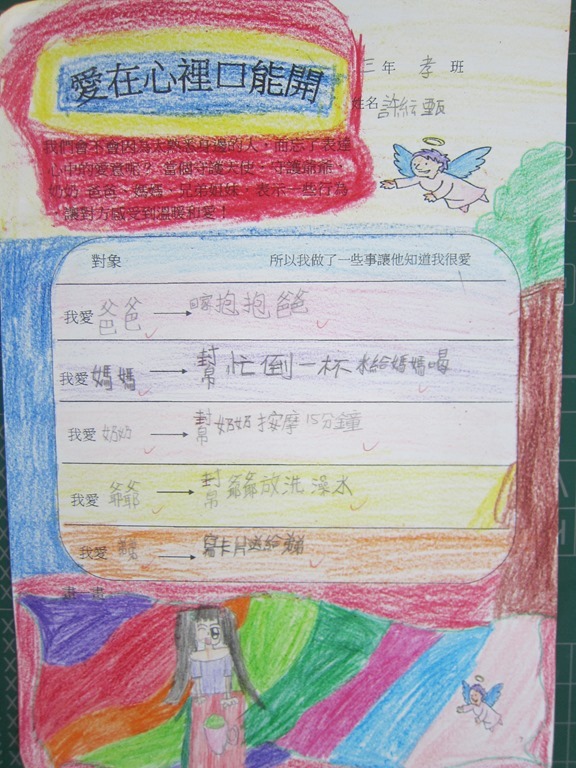 愛在心裡口能開
三年 孝班
姓名 許紜甄
我們會不會因為太熟悉身邊的人,而忘了表達
心中的愛意呢?當個守護天使,守護爺爺、
奶奶、爸爸、媽媽、兄弟姐妹,表示一些行為
讓對方感受到溫暖和愛!
對象 所以我做了一些事讓他知道我很愛
我愛 爸爸 → 回家抱抱爸爸
我愛 媽媽 → 幫忙倒一杯水給媽媽喝
我愛 奶奶 → 幫奶奶按摩15分鐘
我愛 爺爺 → 幫爺爺放洗澡水
我愛 → 寫卡片送給
畫一畫